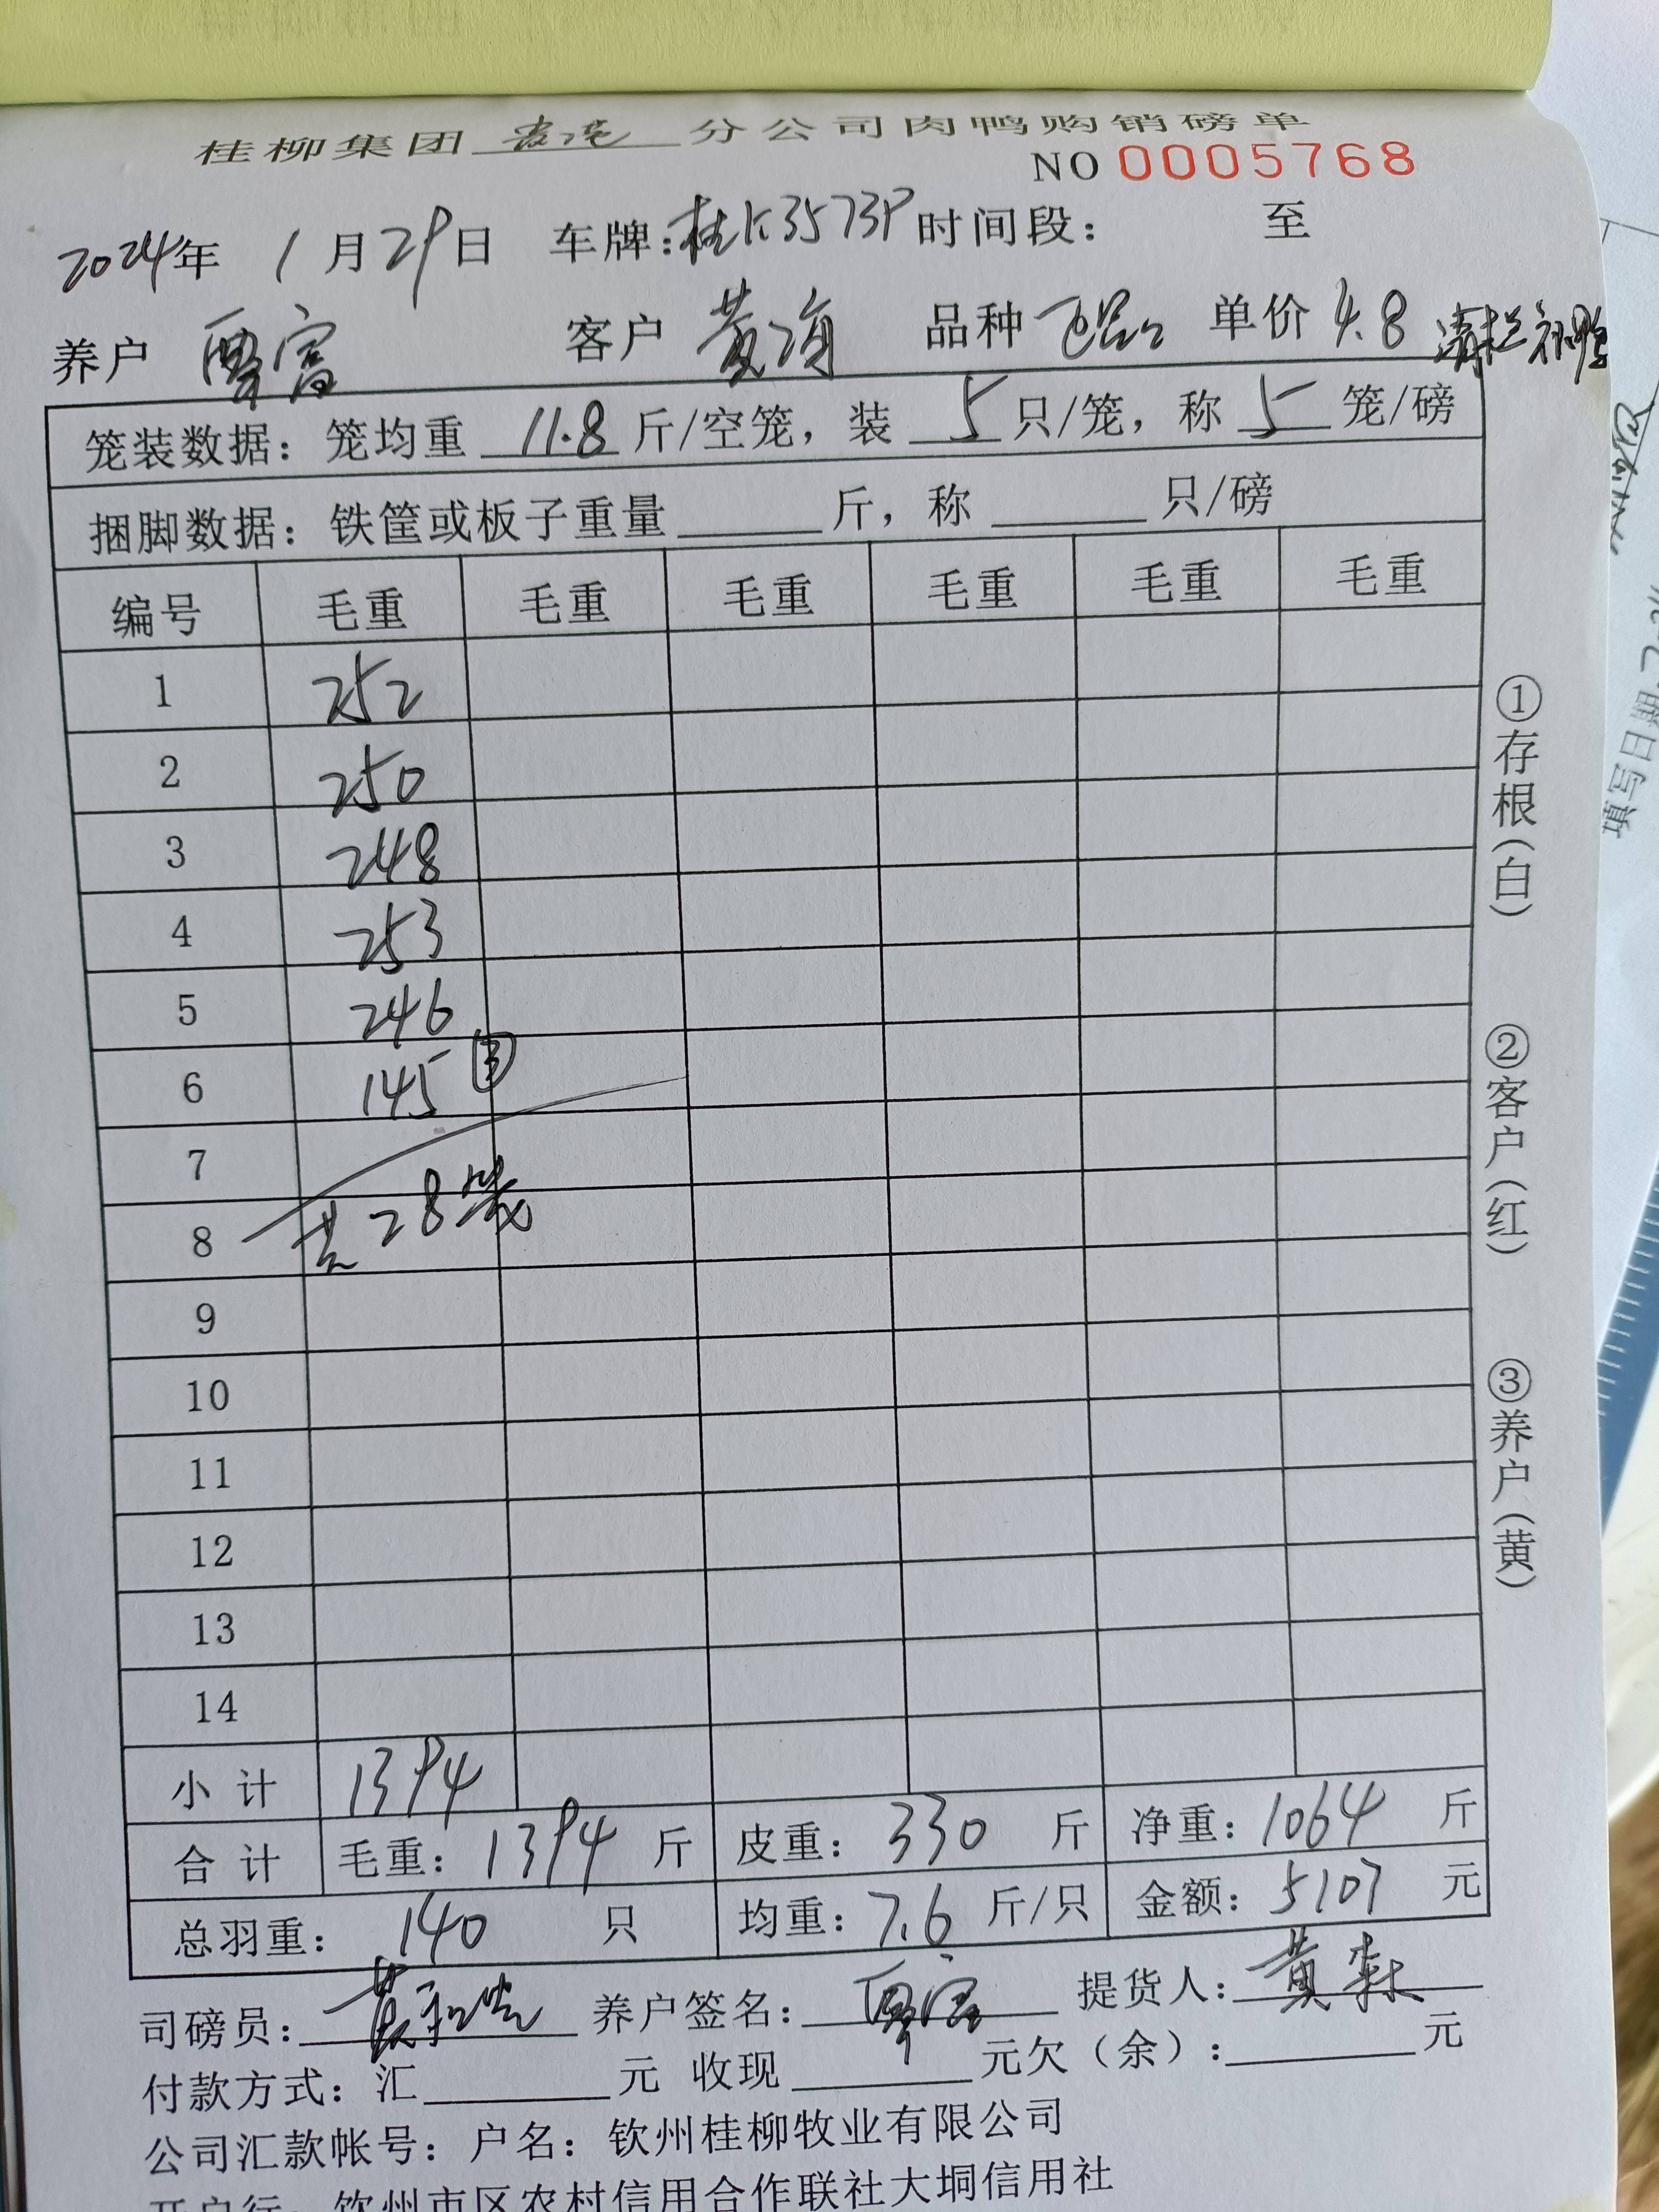 桂柳集团 分公司肉鸭购销磅单
NO 0005768
2024年 1月29日 车牌:桂K3573P 时间段: 至
养户 覃富 客户 黄海 品种 单价 4.8 清栏
笼装数据：笼均重 11.8 斤/空笼，装 5 只/笼，称 5 笼/磅
捆脚数据：铁筐或板子重量 斤，称 只/磅
编号 毛重 毛重 毛重 毛重 毛重 毛重
1 252
2 250
3 248
4 253
5 246
6 145 ③
7
8 共28笼
9
10
11
12
13
14
小计 1394
合计 毛重：1394 斤 皮重：330 斤 净重：1064 斤
总羽重：140 只 均重：7.6 斤/只 金额：5107 元
司磅员： 养户签名：覃富 提货人：黄森
付款方式：汇 元 收现 元欠（余）： 元
公司汇款帐号：户名：钦州桂柳牧业有限公司
开户行：钦州市区农村信用合作联社大垌信用社
①存根（白）
②客户（红）
③养户（黄）
填写日期